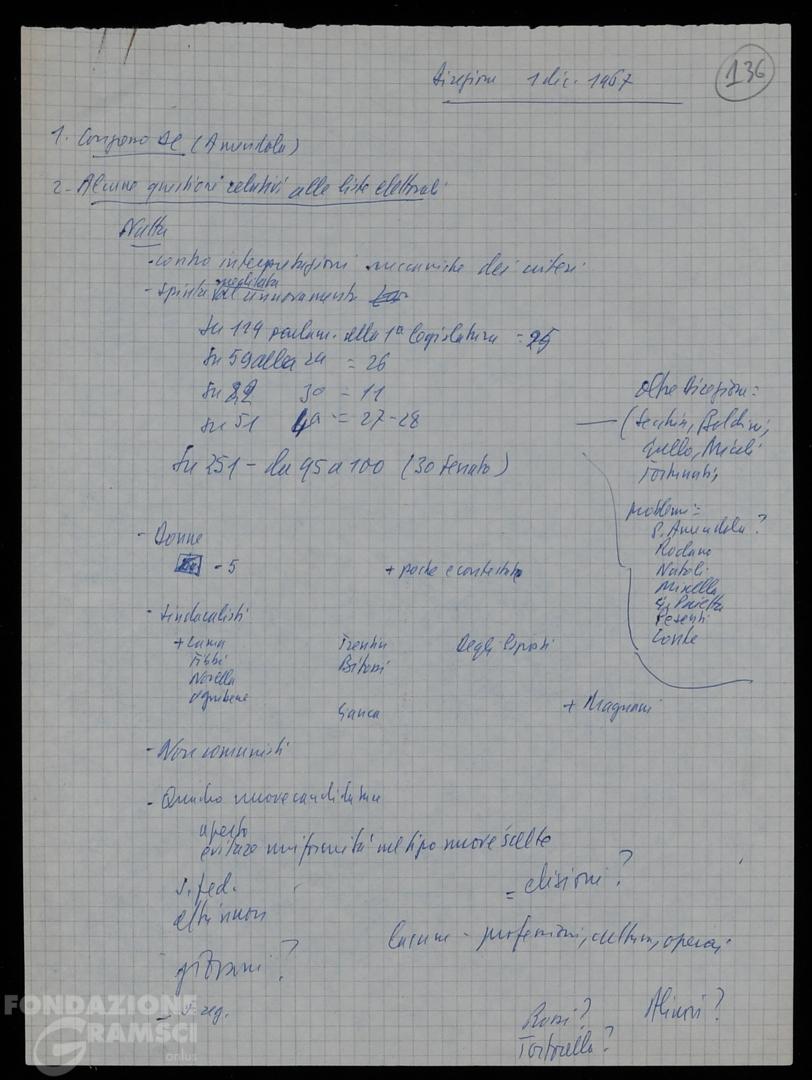 Direzione 1 dic. 1967
136
1. Congresso DC (Amendola)
2 - Alcune questioni relativi alle liste elettorali
Natta
- contro interpretazioni meccaniche dei criteri
meditata
- spinta al rinnovamento
Su 119 parlam. della 1ª legislatura = 25
Su 59 alla 2a = 26
Su 22 3a = 11
Su 51 4a = 27-28
Su 251 - da 95 a 100 (30 Senato)
oltre Direzione =
(Secchia, Boldrini,
Gullo, Miceli
problemi =
P. Amendola?
Rodano
Natoli
Minella
G. Pajetta
Pesenti
Conte
- Donne
- 5 + poche e contestate
- Sindacalisti
+ Lama Trentin Degli Esposti
Fibbi Bitossi
Novella
Sanca
+ Magnani
- Non comunisti
- Quadro nuove candidature
aperto
evitare uniformità nel tipo nuove scelte
s. fed. = elisioni?
altri nuovi
lacune - professioni, cultura, operai
giovani?
- s. reg.
Rossi? Alinovi?
Tortorella?
FONDAZIONE
GRAMSCI
onlus